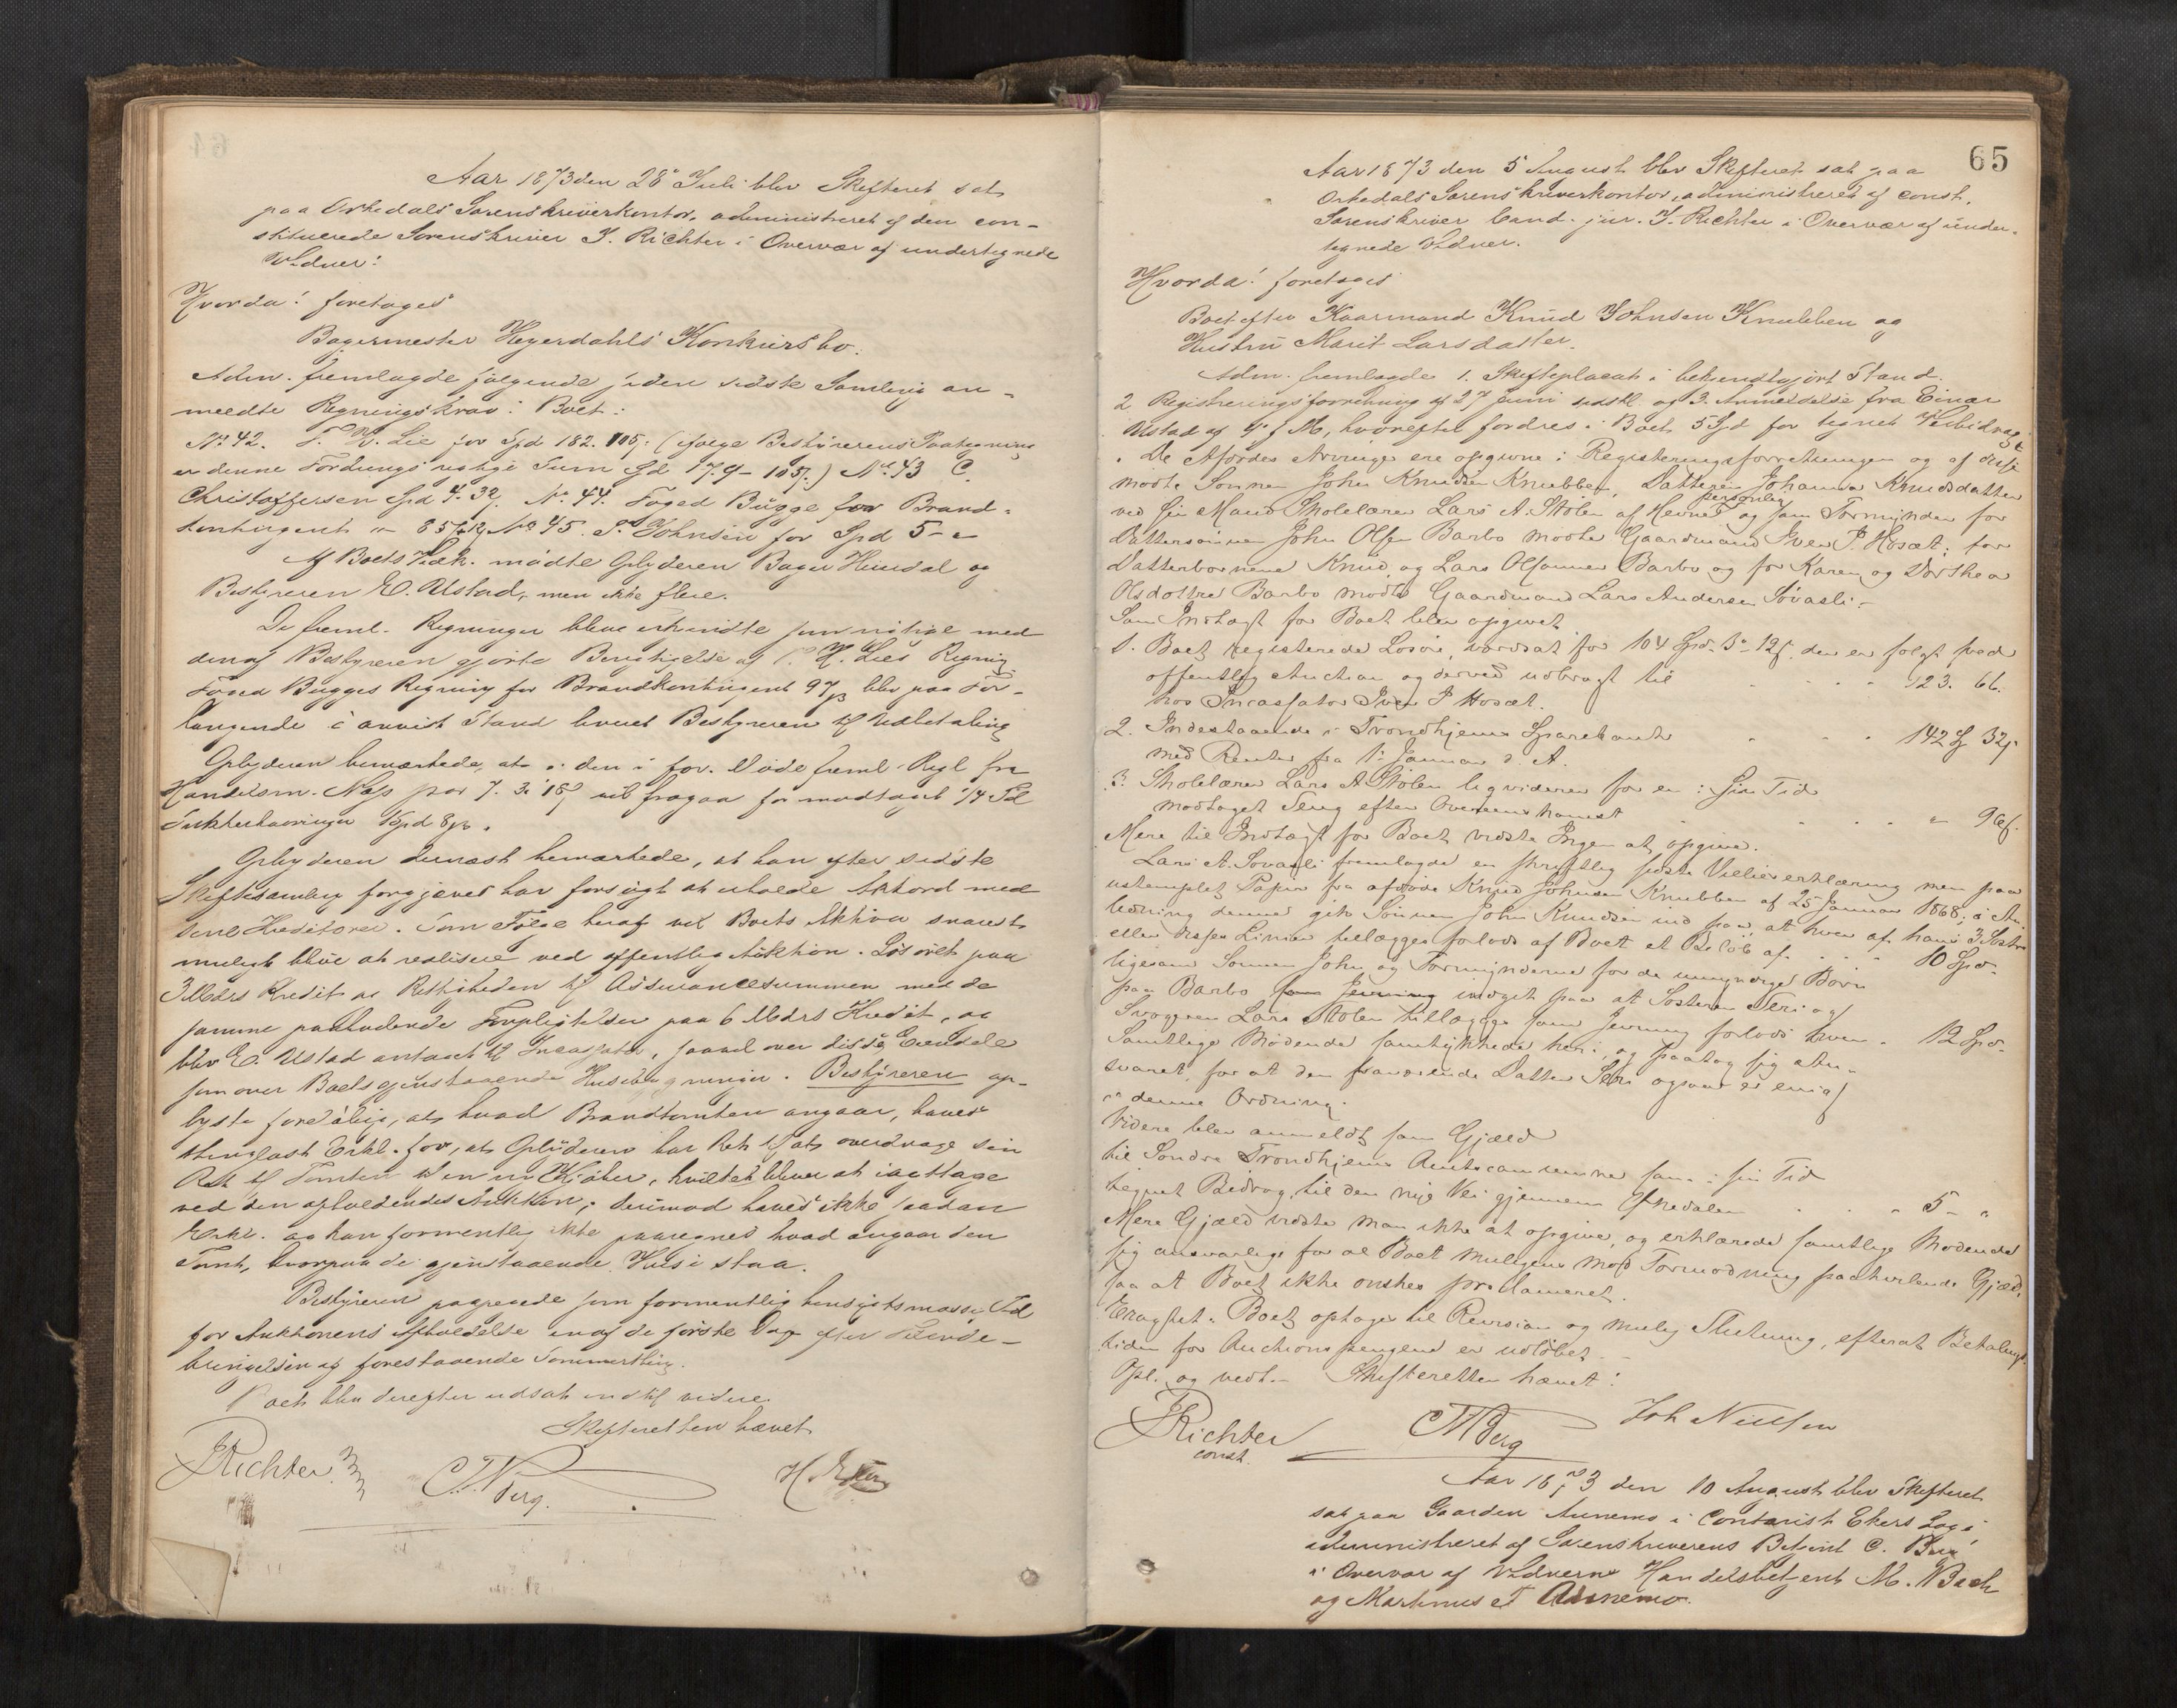 Aar 1873 den 28 Juli blev Skifteret sat
paa Orkedals Sorenskriverkontor, administreret af den con-
stituerede Sorenskriver J. Richter i Overvær af undertegnede
Vidner:
Hvorda! foretoges
Bagermester Heyerdahls Konkursbo.
Adm. fremlagde følgende siden sidste Samling an-
meldte Regningskrav i Boet:
No 42. Lie for Spd 182. 105 (ifølge Bestyrerens Paategning
er denne Fordrings rigtige Sum Spd 179 - 105.) No 43 C.
Christoffersen Spd 4. 32. No 44. Foged Bugge for Brand-
kontingent No 45. S. Johnsen for Spd 5 - "
Af Boets Vedk. mødte Opbyderen Bager Heierdal og
Bestyreren E. Ustad, men ikke flere.
De freml. Regninger bleve erkjendte som rigtige med
den af Bestyreren gjorte Berigtigelse af Lies Regning.
Foged Bugges Regning for Brandkontingent 97 β blev paa For-
langende i anvist Stand leveret Bestyreren til Udbetaling
Opbyderen bemærkede, at i den i for. Møde freml. Regn. fra
Handelsm. Næss paa 7. 3. 18 vil fragaa for modtaget 1/4 Td
Sukkerkavringer 1 Spd 8 β.
Opbyderen dernæst bemærkede, at han efter sidste
Skiftesamling forgjæves har forsøgt at erholde Akkord med
sine Kreditorer. Som Følge heraf vil Boets Aktiva snarest
muligt blive at realisere ved offentlig Auktion. Løsøret paa
3 Mdrs Kredit og Rettigheden til Assurancesummen med de
samme paahvilende Forpligtelser paa 6 Mdrs Kredit, og
blev E. Ustad antaget til Incassator, saavel over disse Eiendele
som over Boets gjenstaaende Husebygninger. Bestyreren op-
lyste foreløbig, at hvad Brandtomten angaar, haves
thinglæst Erkl. for, at Opbyderen har Ret til at overdrage sin
Ret til Tomten til en ny Kjøber, hvilket bliver at iagttage
ved den afholdendes Auktion; derimod haves ikke saadan
Erkl. og kan formentlig ikke paaregnes hvad angaar den
Tomt, hvorpaa de gjenstaaende Huse staa.
Bestyreren paapegede som formentlig hensigtsmæssig Tid
for Auktionens Afholdelse en af de første Dage efter Tilende-
bringelsen af forestaaende Sommerthing.
Boet blev derefter udsat indtil videre.
Skifteretten hævet
JRichter CMBerg.
65
Aar 1873 den 5 August blev Skifteret sat paa
Orkedals Sorenskriverkontor, administreret af const.
Sorenskriver Cand. jur. J. Richter i Overvær af under-
tegnede Vidner.
Hvorda! foretoges
Boet efter Kaarmand Knud Johnsen Knubben og
Hustru Marit Larsdatter.
Adm. fremlagde 1. Skifteplacat i bekjendtgjort Stand.
2 Registreringsforretning af 27 Juni sidstl. og 3. Anmeldelse fra Einar
Ustad af 4 f M, hvorefter fordres i Boet 5 Spd for tegnet Veibidrag
De Afdødes Arvinger ere opgivne i Registreringsforretningen og af disse
mødte Sønnen John Knudsen Knubben, Datteren Johanna Knudsdatter
ved sin Mand Skolelærer Lars A. Stølen af Hevne personlig og som Formynder for
Dattersønnen John Olsen Barbo mødte Gaardmand Iver J. Hosæt; for
Datterbørnene Knud og Lars Olsønner Barbo og for Karen og Dorthea
Olsdøttre Barbo mødte Gaardmand Lars Andersen Sovasli.
Som Indtægt for Boet blev opgivet
1. Boets registrerede Løsøre, vurdsat for 104 Spd. 3 - 12 β. der er solgt ved
offentlig Auction og derved udbragt til 123. 66.
hos Incassator Iver J Hosæt.
2. Indestaaende i Trondhjems Sparebank 142 32
med Renter fra 1. Januar d. A.
3. Skolelærer Lars A Stølen liqviderer for en i sin Tid
modtaget Seng efter Overenskomst " 96
Mere til Indtægt for Boet vidste Ingen at opgive.
Lars A. Sovasli fremlagde en skriftlig sidste Villieserklæring men paa
ustemplet Papir fra afdøde Knud Johnsen Knubben af 25 Januar 1868; i An-
ledning denne gik Sønnen John Knudsen ind paa, at hver af hans 3 Søstre
eller disses Linier tillægges forlods af Boet et Beløb af 10 Spd.
ligesom Sønnen John og Formynderne for de umyndige Børn
paa Barbo indgik paa at Søsteren Seri og
Svogeren Lars Stølen tillægges som Jevning forlods hver 12 Spd.
Samtlige Mødende samtykkede heri, og paatog sig an-
svaret for at den fraværende Datter Seri ogsaa er enig
i denne Ordning.
Videre blev anmeldt som Gjæld
til Søndre Trondhjems Amtscommune som i sin Tid
tegnet Bidrag til den nye Vei gjennem Orkedalen 5 - "
Mere Gjæld vidste man ikke at opgive, og erklærede samtlige Mødende
sig ansvarlige for al Boet muligens mod Formodning paahvilende Gjæld,
saa at Boet ikke ønskes proclameret.
Eragtet: Boet optages til Revision og mulig Slutning, efterat Betalings-
tiden for Auctionspengene er udløbet.
Opl. og vedt. Skifteretten hævet:
JRichter
const. CMBerg Joh Nielsen
Aar 1873 den 10 August blev Skifteret
sat paa Gaarden Aunemo i Contorist Ekers Log,
administreret af Sorenskriverens Betjent C. Berg
i Overvær af Vidnerne Handelsbetjent M. Bach
og Martinus E Aunemo.